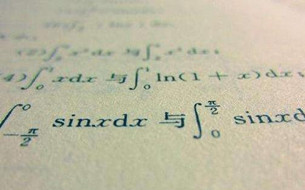 (2)∫₀ x² dx 与 ∫₀ x³ dx;
4)∫₀ xdx 与 ∫₀ ln(1 + x)dx;
∫_{-π/2}^0 sinxdx 与 ∫_0^{π/2} sinxd